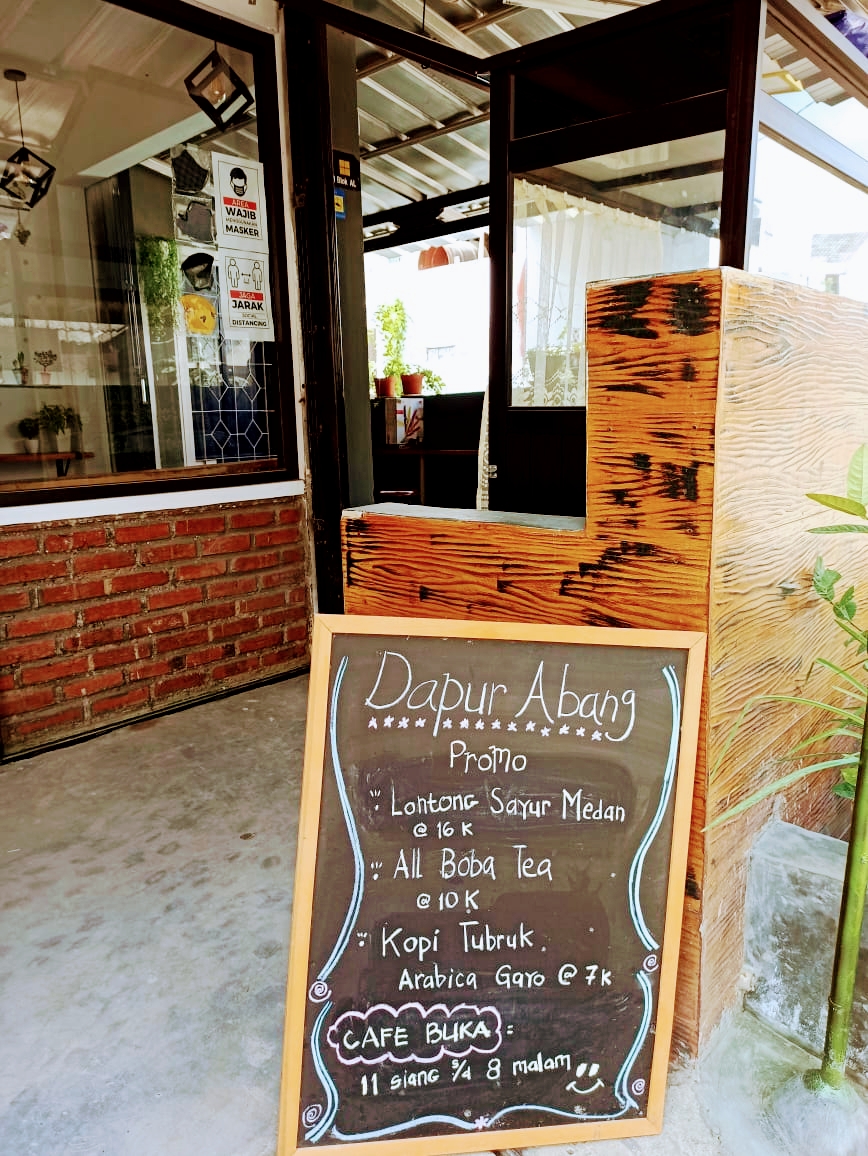 AREA
WAJIB
MENGGUNAKAN
MASKER
JAGA
JARAK
SOCIAL
DISTANCING
Blok AL
Dapur Abang
Promo
Lontong Sayur Medan
@ 16 K
All Boba Tea
@ 10 K
Kopi Tubruk
Arabica Gayo @ 7K
CAFE BUKA :
11 siang s/d 8 malam